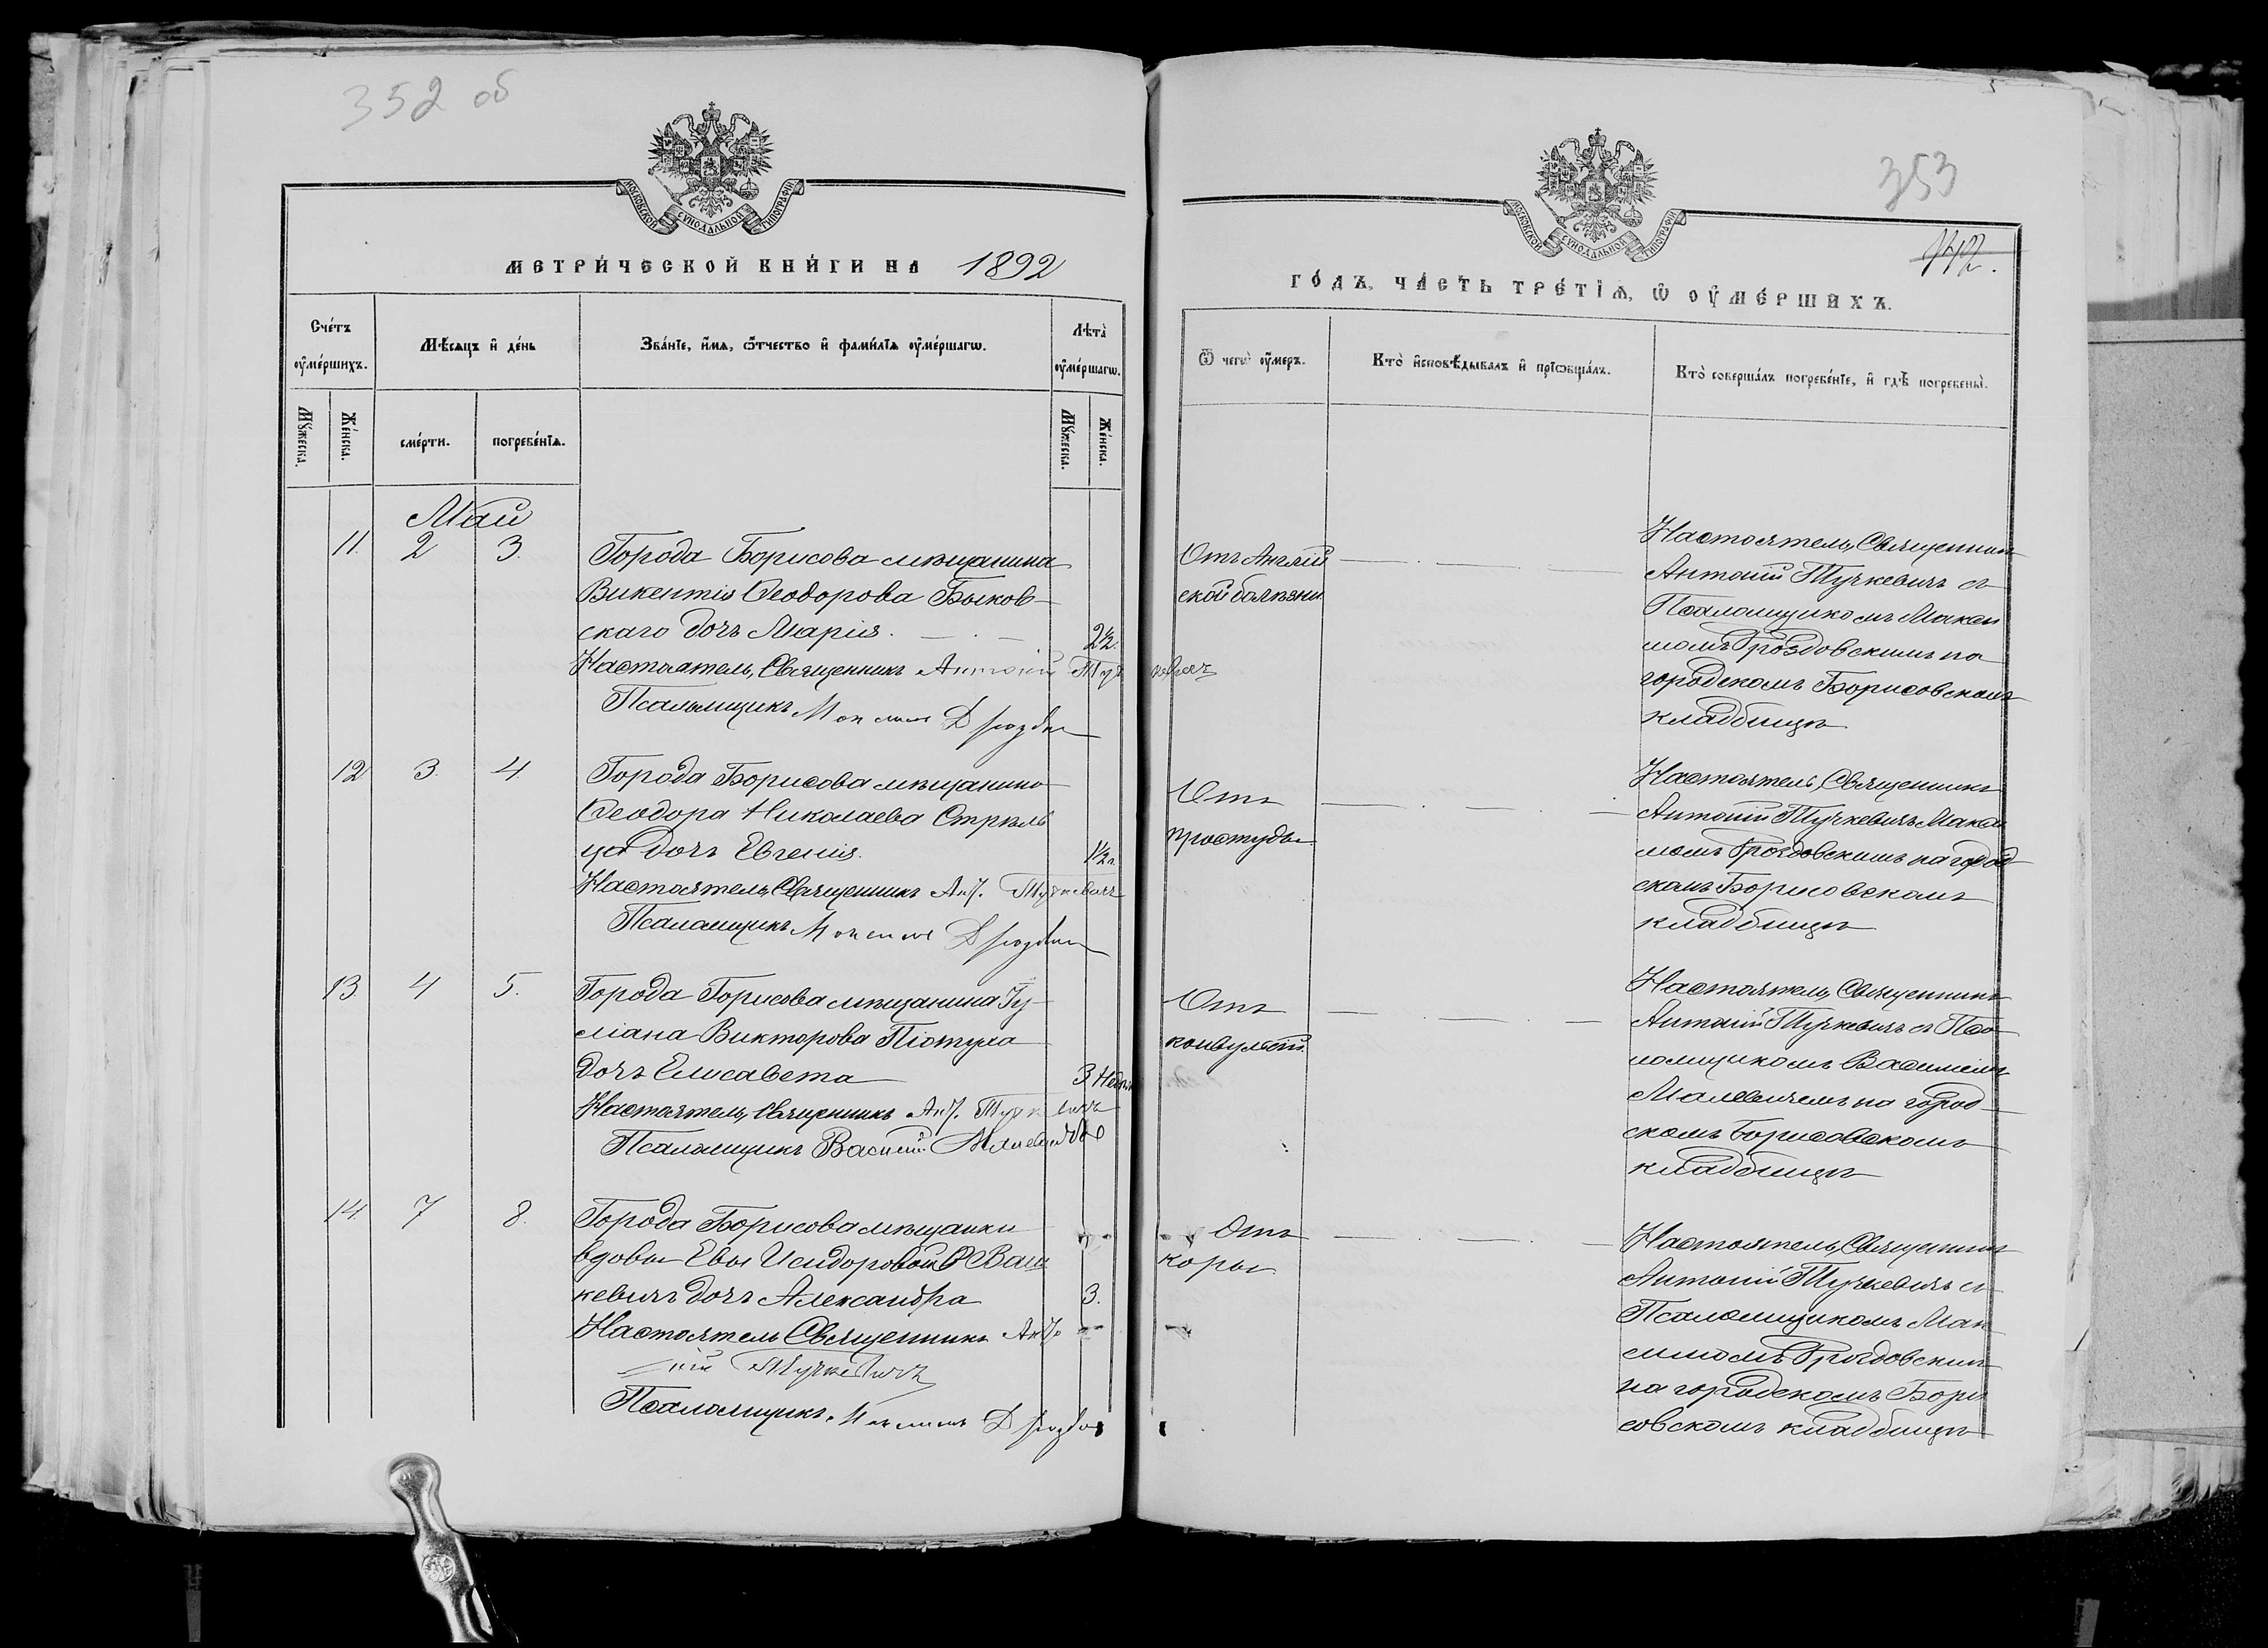 352 об
МОСКОВСКОЙ СѴНОДАЛЬНОЙ ТИПОГРАФІИ
МЕТРИ́ЧЕСКОЙ КНИ́ГИ НА 1892
Сче́тъ ᲂу҆ме́ршихъ.
Мѣ́сяцъ и҆ де́нь
Зва́нїе, и҆́мѧ, ѻ҆́тчество и҆ фами́лїѧ ᲂу҆ме́ршагѡ.
Лѣта̀ ᲂу҆ме́ршагѡ.
Мꙋ́жеска.
Же́нска.
сме́рти.
погребе́нїѧ.
Мꙋ́жеска.
Же́нска.
Май
11. 2 3.
Города Борисова мѣщанина
Викентія Ѳеодорова Быков-
скаго дочь Марія. 2½.
Настоятель, Священникъ Антоній Тучкевичъ
Псаломщикъ Максимъ
12 3. 4.
Города Борисова мѣщанина
Ѳеодора Николаева Стрѣль
ца дочь Евгенія. 1½ г.
Настоятель, Священникъ Ант. Тучкевичъ
Псаломщикъ Максимъ
13. 4 5.
Города Борисова мѣщанина Іу-
ліана Викторова Піотуха
дочь Елисавета 3 Недѣли
Настоятель, Священникъ Ант. Тучкевичъ
Псаломщикъ Василій Малевичъ
14. 7 8.
Города Борисова мѣщанки
вдовы Евы Исидоровой Ваш
кевичъ дочь Александра 3.
Настоятель Священникъ Анто
ній Тучкевичъ
Псаломщикъ Максимъ
353
142.
МОСКОВСКОЙ СѴНОДАЛЬНОЙ ТИПОГРАФІИ
ГО́ДЪ, ЧА́СТЬ ТРЕ́ТІѦ, Ѡ҆ ОУ҆МЕ́РШИХЪ.
Ѿ чегѡ̀ ᲂу҆́меръ.
Кто̀ и҆сповѣ́дывалъ и҆ прїѡбща́лъ.
Кто̀ соверша́лъ погребе́нїе, и҆ гдѣ̀ погребены̀.
Отъ Англій
ской болѣзни
Настоятель, Священникъ
Антоній Тучкевичъ съ
Псаломщикомъ Макси
момъ Дроздовскимъ на
городскомъ Борисовскомъ
кладбищѣ
Отъ
простуды
Настоятель, Священникъ
Антоній Тучкевичъ Макси
момъ Дроздовскимъ на город
скомъ Борисовскомъ
кладбищѣ
Отъ
конвульсій.
Настоятель, Священникъ
Антоній Тучкевичъ съ Пса-
ломщикомъ Василіемъ
Малевичемъ на город-
скомъ Борисовскомъ
кладбищѣ
Отъ
кори
Настоятель, Священникъ
Антоній Тучкевичъ съ
Псаломщикомъ Мак
симомъ Дроздовскимъ
на городскомъ Бори
совскомъ кладбищѣ